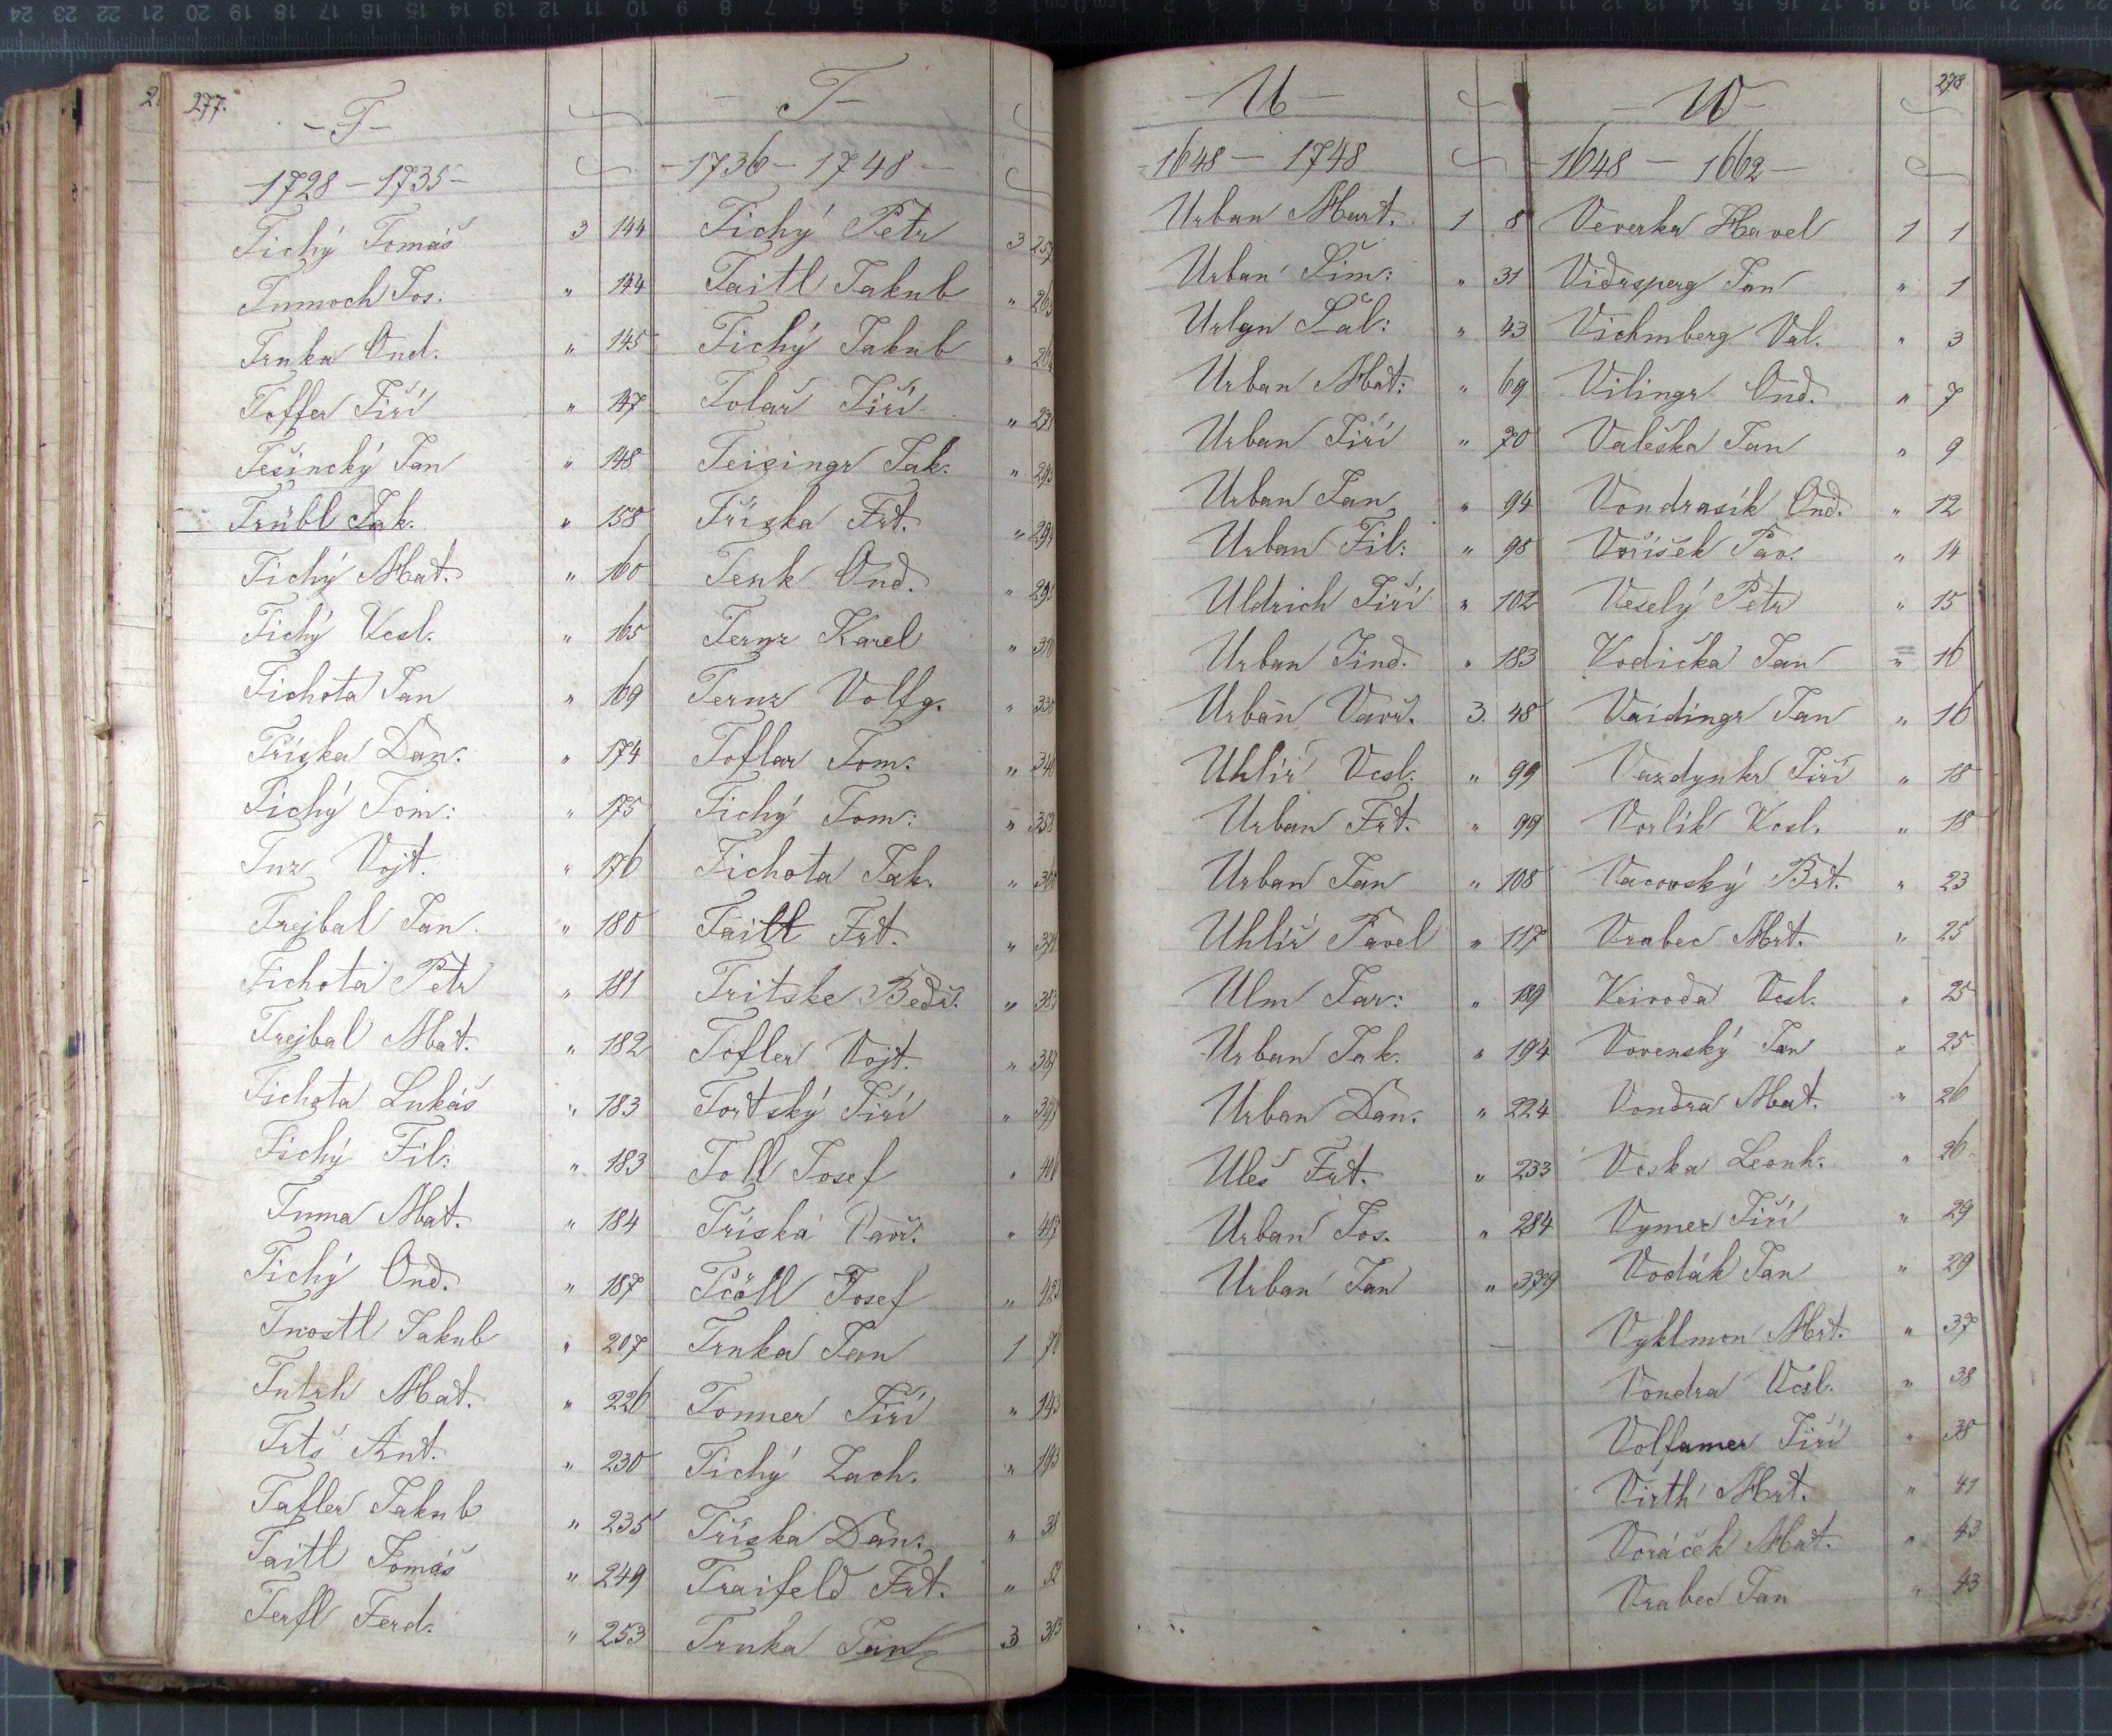 277.
- T -
1728 - 1735 -
Tichý Tomáš 3 144
Tumoch Jos. " 144
Trnka Ond. " 145
Toffer Jiří " 147
Tešíncký Jan " 148
Trübl Jak. " 158
Tichý Mat. " 160
Tichý Vcsl. " 165
Tichota Jan " 169
Tříska Dan. " 174
Tichý Tom: " 175
Tuz Vojt. " 176
Trejbal Jan " 180
Tichota Petr " 181
Trejbal Mat. " 182
Tichota Lukáš " 183
Tichý Fil: " 183
Tuma Mat. " 184
Tichý Ond. " 187
Trostl Jakub " 207
Mat. " 226
Ant. " 230
Tafler Jakub " 235
Taitl Tomáš " 249
Terfl Ferd. " 253
- T -
- 1736 - 1748 -
Tichý Petr 3
Taitl Jakub "
Tichý Jakub "
Tolar Jiří "
Teisingr Jak. "
Tříska Frt. "
Tenk Ond. "
Ternr Karel "
Ternr Volfg. "
Toflar Tom. "
Tichý Tom: "
Tichota Jak. "
Taitl Frt. "
Tritske Bedř. "
Tofler Vojt. "
Tortský Jiří "
Toll Josef "
Tříska Vavř. "
Josef "
Trnka Jan 1
Tonner Jiří "
Tichý Zach. "
Tříska Dan. "
Traifeld Frt. "
Trnka Jan 3 313
- U -
- 1648 - 1748
Urban Mart. 1 8
Urban Šim: " 31
Urlgn Šal: " 43
Urban Mat: " 69
Urban Jiří " 70
Urban Jan " 94
Urban Fil: " 98
Uldrich Jiří " 102
Urban Jind. " 183
Urban Vavř. 3. 48
Uhlíř Vcsl. " 99
Urban Frt. " 99
Urban Jan " 108
Uhlíř Pavel " 117
Ulm Jar: " 189
Urban Jak. " 194
Urban Dan. " 224
Uleš Frt. " 233
Urban Jos. " 284
Urban Jan " 379
278
- W -
- 1648 - 1662 -
Veverka Havel 1 1
Vidrsperg Jan " 1
Vichmberg Val. " 3
Vilingr Ond. " 7
Valeška Jan " 9
Vondrasík Ond. " 12
Voříšek Pav. " 14
Veselý Petr " 15
Vodička Jan " 16
Vaidingr Jan " 16
Vazdynkr Jiří " 18
Vorlík Vcsl. " 18
Vacovský Brt. " 23
Vrabec Mrt. " 25
Veivoda Vcsl. " 25
Vovenský Jan " 25
Vondra Mat. " 26
Voska Leonh. " 26
Vymer Jiří " 29
Vodák Jan " 29
Vyklmon Mrt. " 37
Vondra Vcsl. " 38
Volfamer Jiří " 38
Virth Mrt. " 41
Voráček Mat. " 43
Vrabec Jan " 43